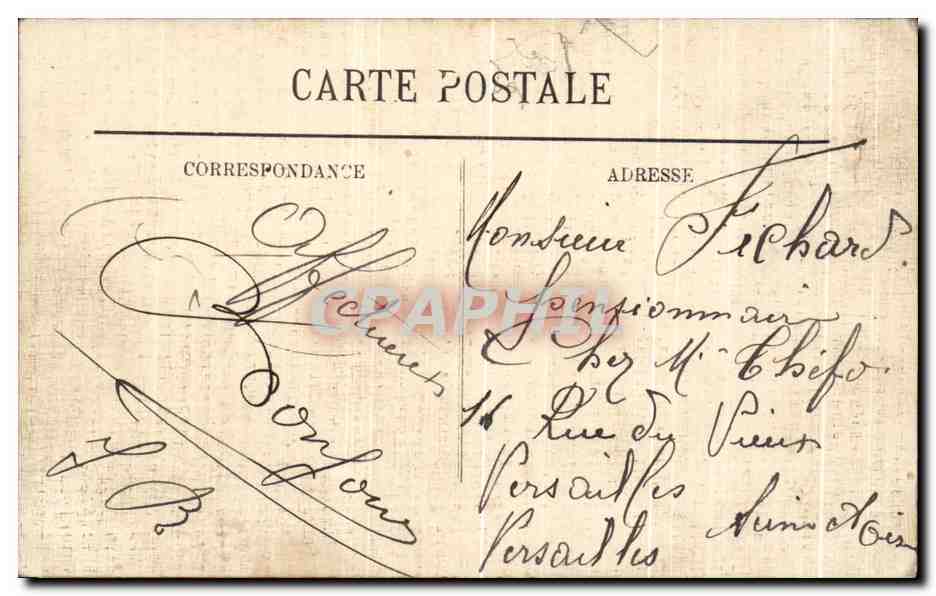 CARTE POSTALE
CORRESPONDANCE
ADRESSE
Affectueux
Bonjour
B
Monsieur Fichard
pensionnaire
chez Mr Théfo
16 Rue du Vieux
Versailles
Versailles Seine et Oise
CPAPHIL